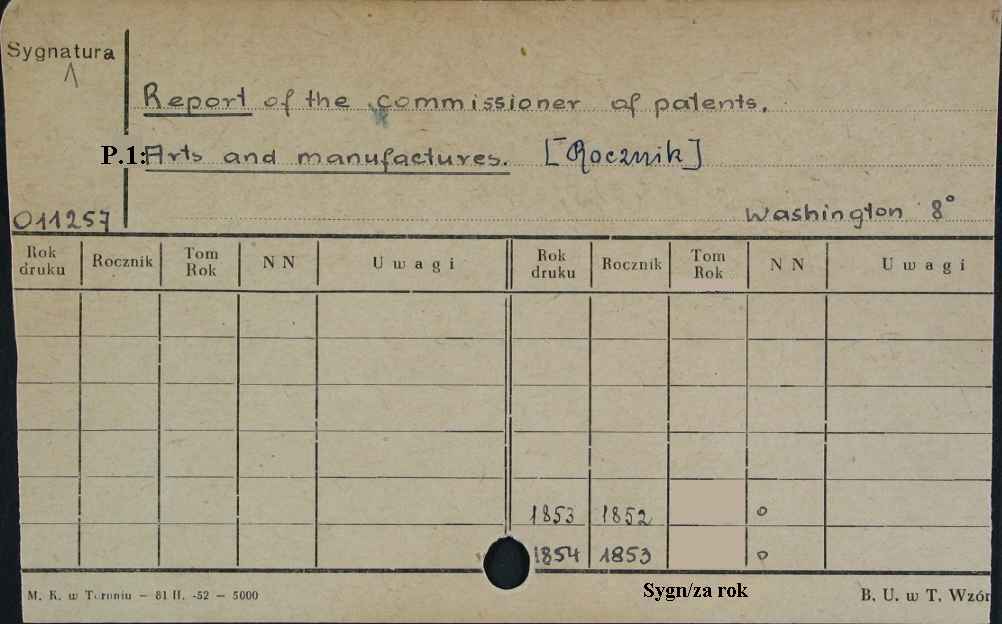 Sygnatura
Report of the commissioner of patents.
P.1: Arts and manufactures. [Rocznik]
011257
Washington 8°
Rok druku Rocznik Tom Rok NN Uwagi Rok druku Rocznik Tom Rok NN Uwagi
1853 1852 o
1854 1853 o
Sygn/za rok
M. K. w Toruniu — 81 H. -52 — 5000
B. U. w T. Wzór